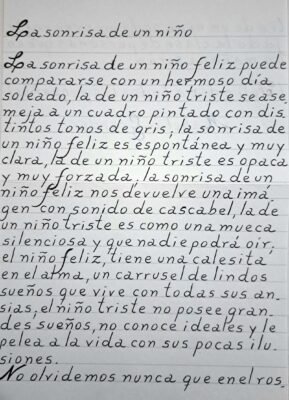 La sonrisa de un niño
La sonrisa de un niño feliz puede
compararse con un hermoso día
soleado, la de un niño triste se ase
meja a un cuadro pintado con dis
tintos tonos de gris, la sonrisa de
un niño feliz es espontánea y muy
clara, la de un niño triste es opaca
y muy forzada; la sonrisa de un
niño feliz nos devuelve una imá
gen con sonido de cascabel, la de
un niño triste es como una mueca
silenciosa y que nadie podrá oir,
el niño feliz, tiene una calesita
en el alma, un carrusel de lindos
sueños que vive con todas sus an-
sias, el niño triste no posee gran-
des sueños, no conoce ideales y le
pelea a la vida con sus pocas ilu-
siones.
No olvidemos nunca que en el ros.